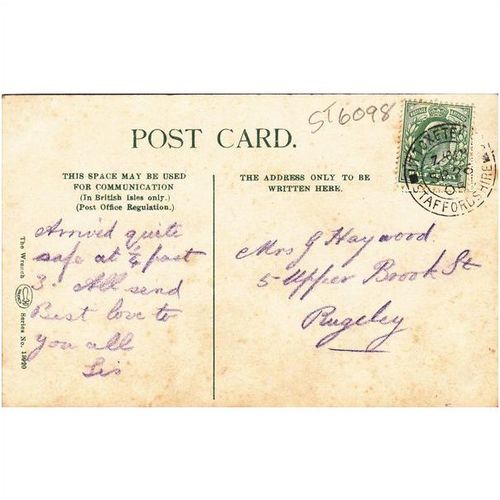 ST6098
POST CARD.
THIS SPACE MAY BE USED
FOR COMMUNICATION
(In British Isles only.)
(Post Office Regulation.)
THE ADDRESS ONLY TO BE
WRITTEN HERE.
Arrived quite
safe at ¼ past
3. All send
Best love to
you all
Lis
Mrs G Haywood
5 Upper Brook St
Rugeley
The Wrench
Series No.
UTTOXETER
STAFFORDSHIRE